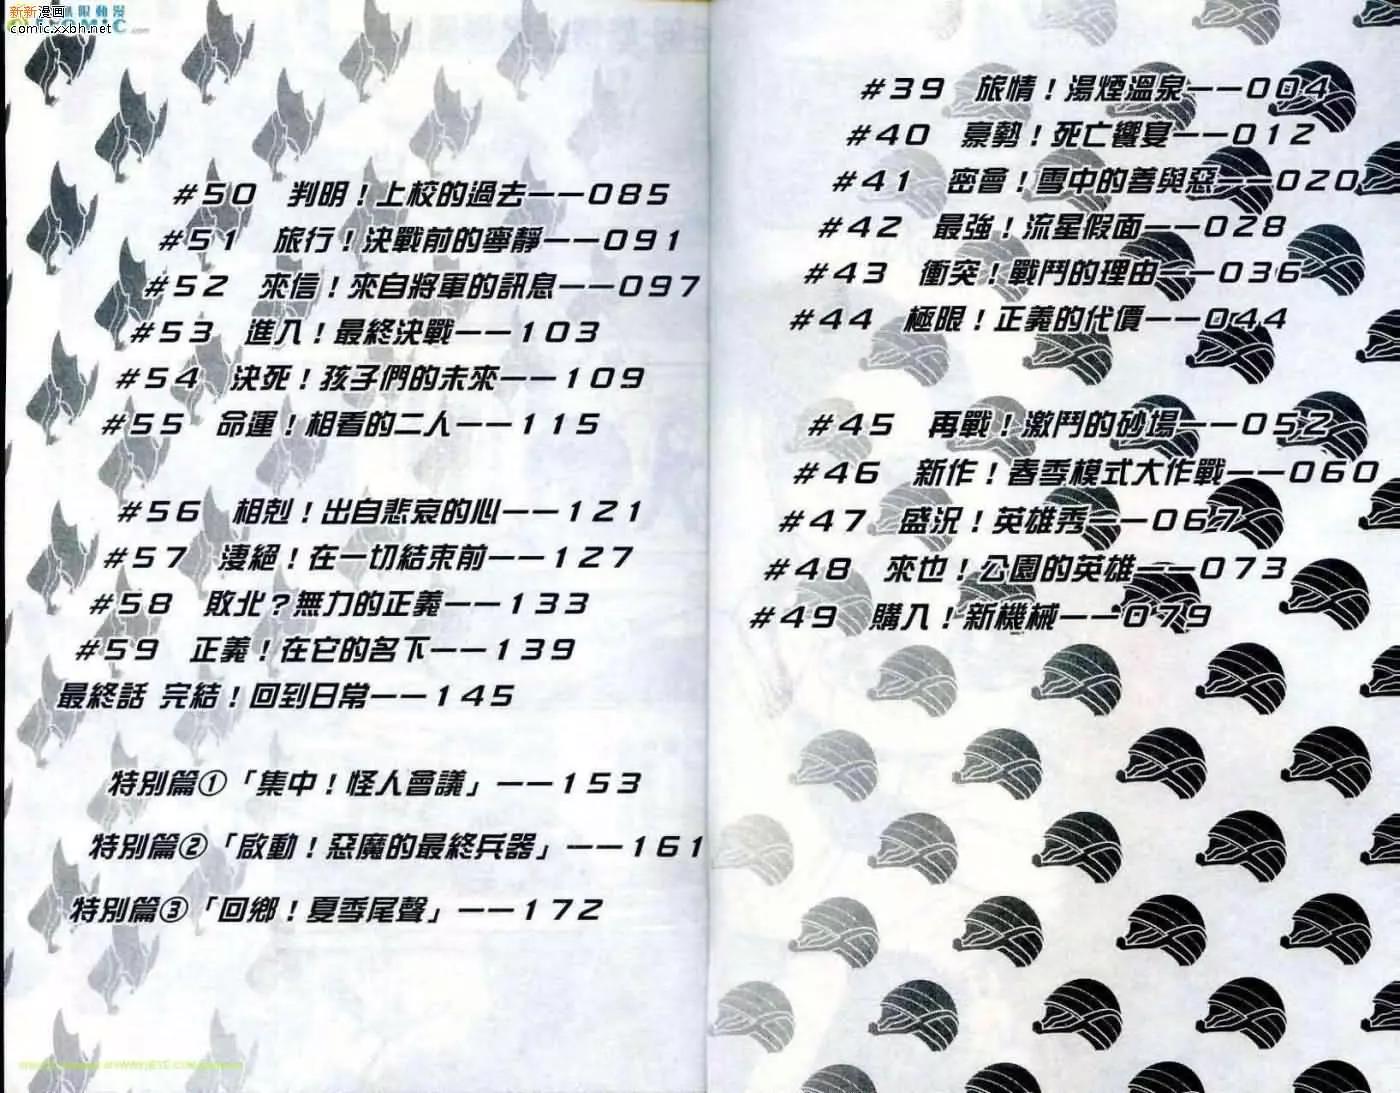 新新漫画
comic.xxbh.net
#39 旅情！湯煙溫泉——004
#40 豪勢！死亡饗宴——012
#41 密會！雪中的善與惡——020
#42 最強！流星假面——028
#43 衝突！戰鬥的理由——036
#44 極限！正義的代價——044
#45 再戰！激鬥的砂場——052
#46 新作！春季模式大作戰——060
#47 盛況！英雄秀——067
#48 來也！公園的英雄——073
#49 購入！新機械——079
#50 判明！上校的過去——085
#51 旅行！決戰前的寧靜——091
#52 來信！來自將軍的訊息——097
#53 進入！最終決戰——103
#54 決死！孩子們的未來——109
#55 命運！相看的二人——115
#56 相剋！出自悲哀的心——121
#57 淒絕！在一切結束前——127
#58 敗北？無力的正義——133
#59 正義！在它的名下——139
最終話 完結！回到日常——145
特別篇①「集中！怪人會議」——153
特別篇②「啟動！惡魔的最終兵器」——161
特別篇③「回鄉！夏季尾聲」——172